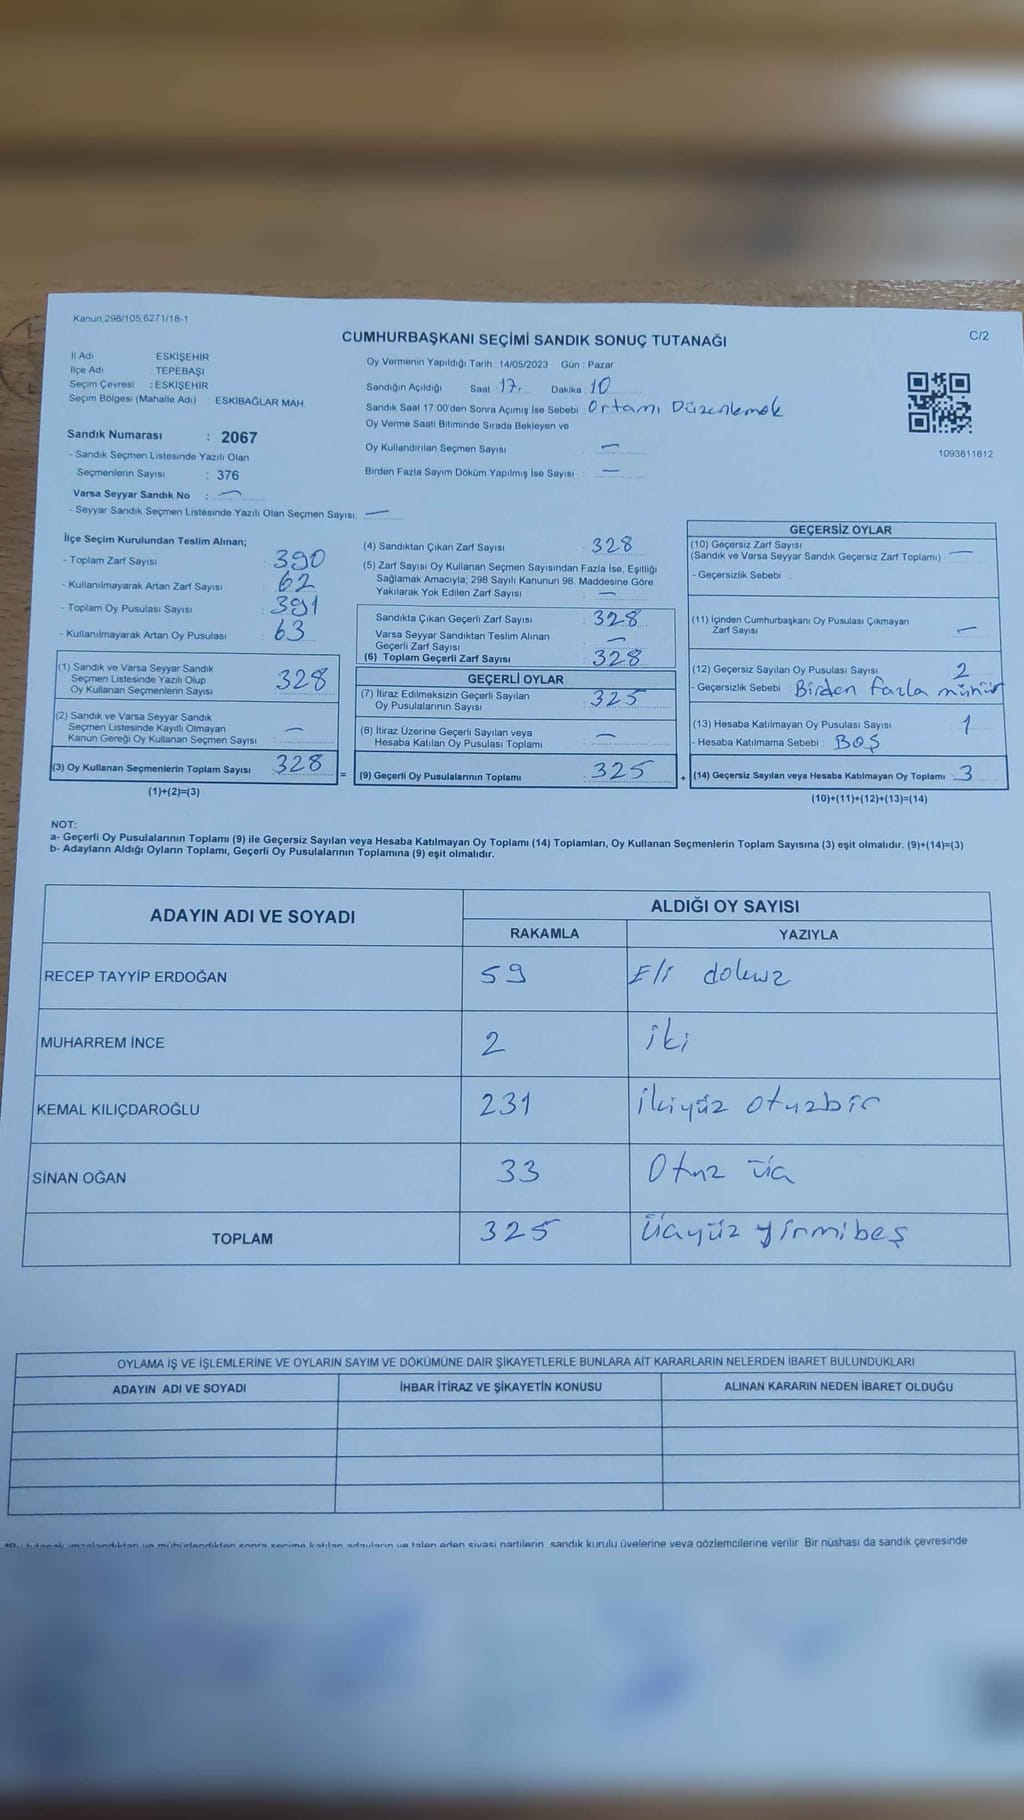 Kanun;298/105;6271/18-1
C/2
CUMHURBAŞKANI SEÇİMİ SANDIK SONUÇ TUTANAĞI
İl Adı ESKİŞEHİR
İlçe Adı : TEPEBAŞI
Seçim Çevresi : ESKİŞEHİR
Seçim Bölgesi (Mahalle Adı) ESKİBAĞLAR MAH.
Sandık Numarası : 2067
- Sandık Seçmen Listesinde Yazılı Olan
Seçmenlerin Sayısı : 376
Varsa Seyyar Sandık No : —
- Seyyar Sandık Seçmen Listesinde Yazılı Olan Seçmen Sayısı: —
Oy Vermenin Yapıldığı Tarih : 14/05/2023 Gün : Pazar
Sandığın Açıldığı Saat 17. Dakika : 10
Sandık Saat 17.00'den Sonra Açımış İse Sebebi : Ortamı Düzenlemek
Oy Verme Saati Bitiminde Sırada Bekleyen ve
Oy Kullandırılan Seçmen Sayısı : —
Birden Fazla Sayım Döküm Yapılmış İse Sayısı : —
1093811812
İlçe Seçim Kurulundan Teslim Alınan;
- Toplam Zarf Sayısı : 390
- Kullanılmayarak Artan Zarf Sayısı : 62
- Toplam Oy Pusulası Sayısı : 391
- Kullanılmayarak Artan Oy Pusulası : 63
(1) Sandık ve Varsa Seyyar Sandık
Seçmen Listesinde Yazılı Olup
Oy Kullanan Seçmenlerin Sayısı : 328
(2) Sandık ve Varsa Seyyar Sandık
Seçmen Listesinde Kayıtlı Olmayan
Kanun Gereği Oy Kullanan Seçmen Sayısı : —
(3) Oy Kullanan Seçmenlerin Toplam Sayısı : 328
(1)+(2)=(3)
=
(4) Sandıktan Çıkan Zarf Sayısı : 328
(5) Zarf Sayısı Oy Kullanan Seçmen Sayısından Fazla İse, Eşitliği
Sağlamak Amacıyla; 298 Sayılı Kanunun 98. Maddesine Göre
Yakılarak Yok Edilen Zarf Sayısı : —
Sandıkta Çıkan Geçerli Zarf Sayısı : 328
Varsa Seyyar Sandıktan Teslim Alınan
Geçerli Zarf Sayısı : —
(6) Toplam Geçerli Zarf Sayısı : 328
GEÇERLİ OYLAR
(7) İtiraz Edilmeksizin Geçerli Sayılan
Oy Pusulalarının Sayısı : 325
(8) İtiraz Üzerine Geçerli Sayılan veya
Hesaba Katılan Oy Pusulası Toplamı : —
(9) Geçerli Oy Pusulalarının Toplamı : 325
+
GEÇERSİZ OYLAR
(10) Geçersiz Zarf Sayısı
(Sandık ve Varsa Seyyar Sandık Geçersiz Zarf Toplamı) : —
- Geçersizlik Sebebi :
(11) İçinden Cumhurbaşkanı Oy Pusulası Çıkmayan
Zarf Sayısı : —
(12) Geçersiz Sayılan Oy Pusulası Sayısı : 2
- Geçersizlik Sebebi : Birden fazla mühür
(13) Hesaba Katılmayan Oy Pusulası Sayısı : 1
- Hesaba Katılmama Sebebi : BOŞ
(14) Geçersiz Sayılan veya Hesaba Katılmayan Oy Toplamı : 3
(10)+(11)+(12)+(13)=(14)
NOT:
a- Geçerli Oy Pusulalarının Toplamı (9) ile Geçersiz Sayılan veya Hesaba Katılmayan Oy Toplamı (14) Toplamları, Oy Kullanan Seçmenlerin Toplam Sayısına (3) eşit olmalıdır. (9)+(14)=(3)
b- Adayların Aldığı Oyların Toplamı, Geçerli Oy Pusulalarının Toplamına (9) eşit olmalıdır.
ADAYIN ADI VE SOYADI
ALDIĞI OY SAYISI
RAKAMLA YAZIYLA
RECEP TAYYİP ERDOĞAN 59 Elli dokuz
MUHARREM İNCE 2 iki
KEMAL KILIÇDAROĞLU 231 ikiyüz otuzbir
SİNAN OĞAN 33 Otuz üç
TOPLAM 325 üçyüz yirmibeş
OYLAMA İŞ VE İŞLEMLERİNE VE OYLARIN SAYIM VE DÖKÜMÜNE DAİR ŞİKAYETLERLE BUNLARA AİT KARARLARIN NELERDEN İBARET BULUNDUKLARI
ADAYIN ADI VE SOYADI İHBAR İTİRAZ VE ŞİKAYETİN KONUSU ALINAN KARARIN NEDEN İBARET OLDUĞU
*Bu tutanak imzalandıktan ve mühürlendikten sonra seçime katılan adayların ve talep eden siyasi partilerin, sandık kurulu üyelerine veya gözlemcilerine verilir. Bir nüshası da sandık çevresinde